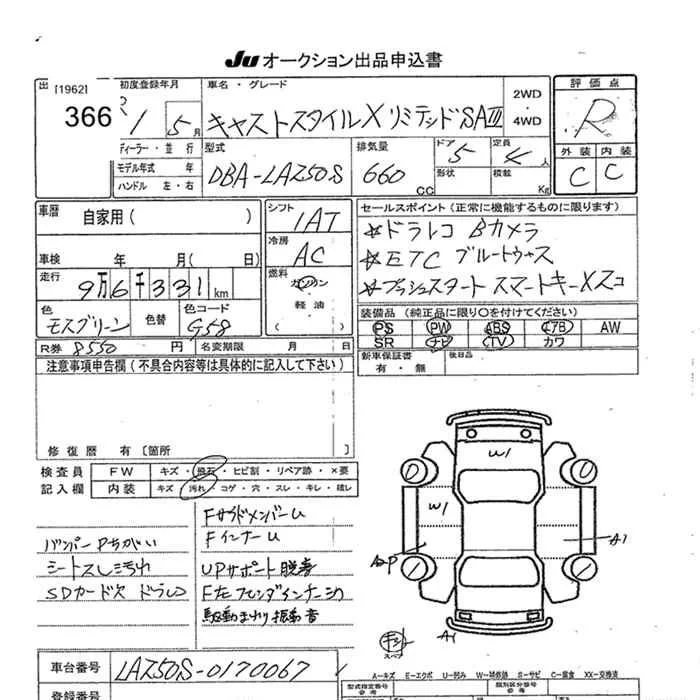 Ju オークション出品申込書
出 [1962] 366
初度登録年月 R 1 5 月
車名・グレード
キャストスタイルX リミテッドSAⅢ
2WD・4WD
評価点
R
外装 内装
C C
ディーラー・並行
モデル年式 年
ハンドル 左・右
型式
DBA-LA250S
排気量
660 CC
ドア 5
定員 4 人
形状
積載 Kg
車歴 自家用( )
車検 年 月( 日)
走行
9万6千331 km
色 モスグリーン
色替
色コード G58
シフト
1AT
冷房
AC
燃料
ガソリン
軽油
( )
セールスポイント(正常に機能するものに限ります)
☆ドラレコ Bカメラ
☆ETC ブルートゥース
☆プッシュスタート スマートキーXスコ
装備品(純正品に限り○を付けてください)
PS PW ABS エアB AW
SR ナビ TV カワ
新車保証書
有・無
後日品
R券 8550 円
名変期限 月 日
注意事項申告欄(不具合内容等は具体的に記入して下さい)
修復歴 有〔箇所
検査員
記入欄
FW キズ・飛石・ヒビ割・リペア跡・×要
内装 キズ・汚れ・コゲ・穴・スレ・キレ・破レ
バンパーPちがい
シートスレ汚れ
SDカード欠 ドラレコ
FサイドメンバーU
FインナーU
UPサポート脱着
F左フェンダインナーキカ
駆動まわり振動音
W1
W1
A1
A1
車台番号 LA250S-0170067
登録番号
A-キズ E-エクボ U-凹み W-補修跡 S-サビ C-腐食 XX-交換済
型式指定番号
参考
類別区分番号
参考